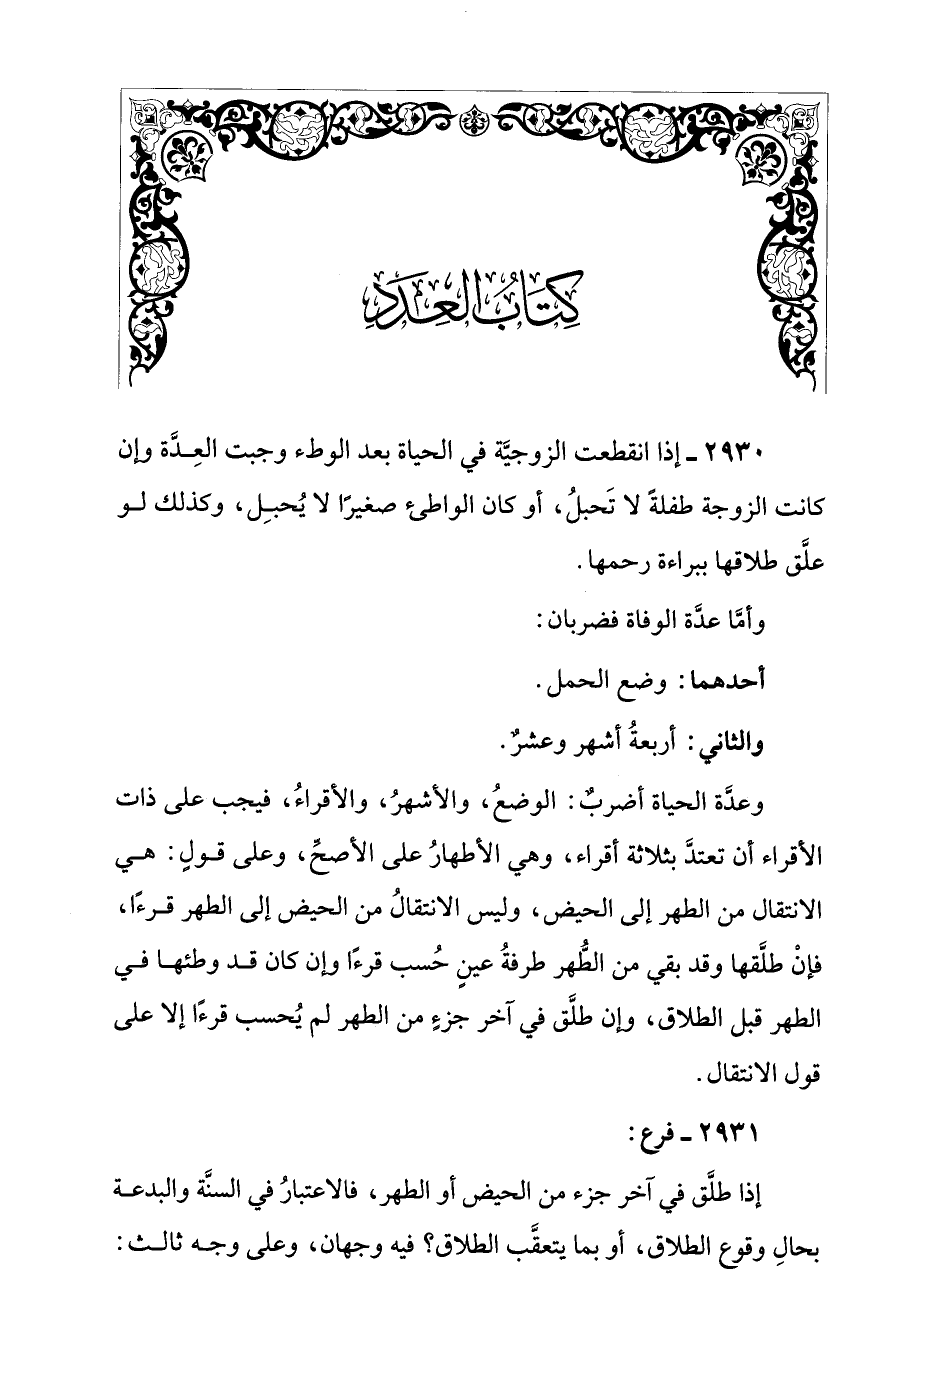 كِتَابُ العِدَدِ
٢٩٣٠ ـ إذا انقطعت الزوجيَّة في الحياة بعد الوطء وجبت العِدَّة وإن
كانت الزوجة طفلةً لا تَحبلُ، أو كان الواطئ صغيرًا لا يُحبِل، وكذلك لو
علَّق طلاقها ببراءة رحمها.
وأمَّا عدَّة الوفاة فضربان:
أحدهما: وضع الحمل.
والثاني: أربعةُ أشهر وعشرٌ.
وعدَّة الحياة أضربٌ: الوضعُ، والأشهرُ، والأقراءُ، فيجب على ذات
الأقراء أن تعتدَّ بثلاثة أقراء، وهي الأطهارُ على الأصحِّ، وعلى قولٍ: هي
الانتقال من الطهر إلى الحيض، وليس الانتقالُ من الحيض إلى الطهر قرءًا،
فإنْ طلَّقها وقد بقي من الطُّهر طرفةُ عينٍ حُسب قرءًا وإن كان قد وطئها في
الطهر قبل الطلاق، وإن طلَّق في آخر جزءٍ من الطهر لم يُحسب قرءًا إلا على
قول الانتقال.
٢٩٣١ ـ فرع:
إذا طلَّق في آخر جزء من الحيض أو الطهر، فالاعتبارُ في السنَّة والبدعة
بحالِ وقوع الطلاق، أو بما يتعقَّب الطلاق؟ فيه وجهان، وعلى وجه ثالث: